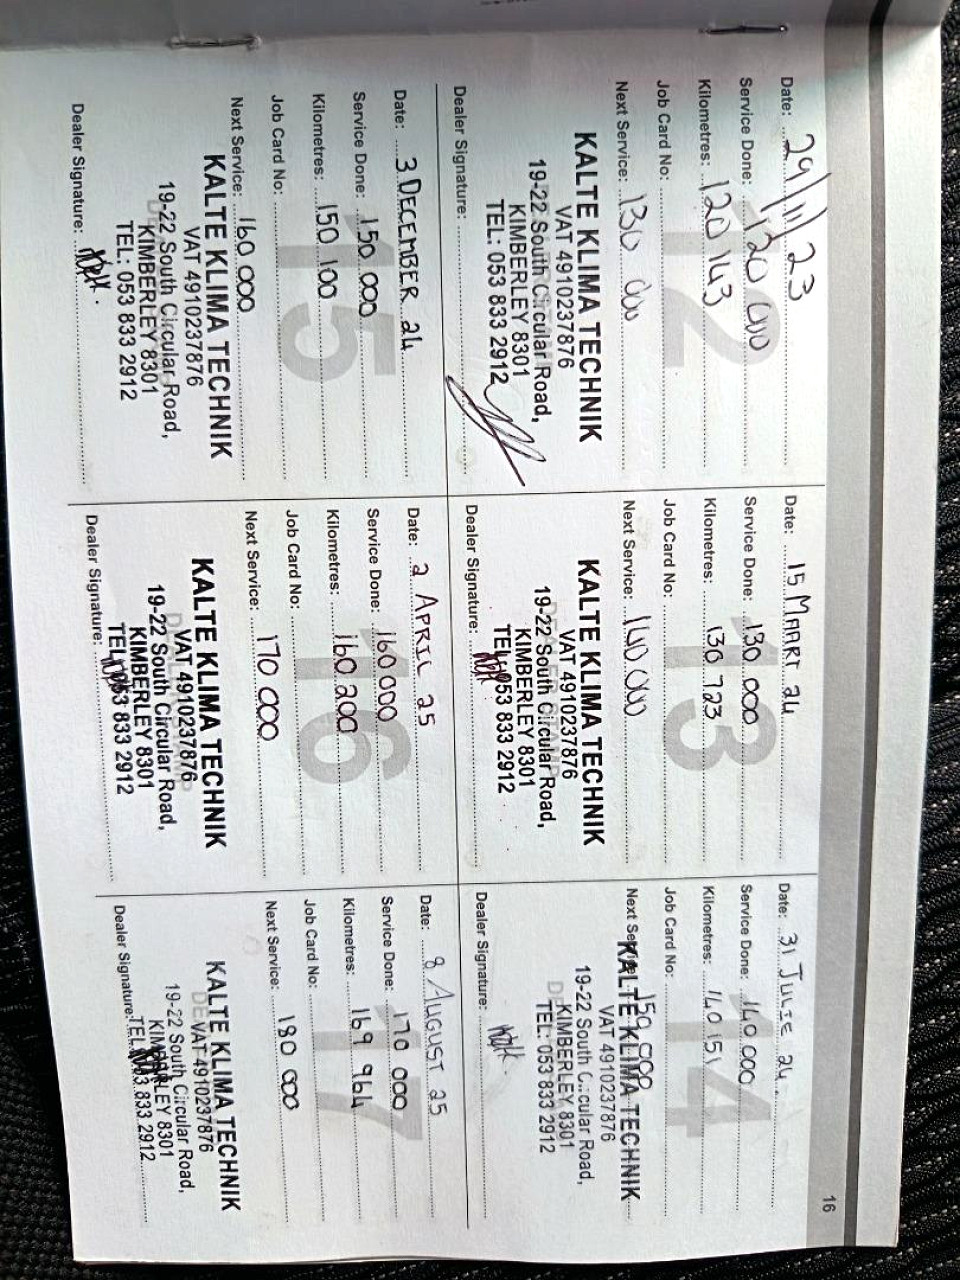 16
12
Date: 29/11/23
Service Done: 120 000
Kilometres: 120 143
Job Card No:
Next Service: 130 000
KALTE KLIMA TECHNIK
VAT 4910237876
19-22 South Circular Road,
KIMBERLEY 8301
TEL: 053 833 2912
Dealer Signature:
13
Date: 15 MAART 24
Service Done: 130 000
Kilometres: 130 723
Job Card No:
Next Service: 140 000
KALTE KLIMA TECHNIK
VAT 4910237876
19-22 South Circular Road,
KIMBERLEY 8301
TEL: 053 833 2912
Dealer Signature:
14
Date: 31 JULIE 24.
Service Done: 140 000
Kilometres: 140 151
Job Card No:
Next Service: 150 000
KALTE KLIMA TECHNIK
VAT 4910237876
19-22 South Circular Road,
KIMBERLEY 8301
TEL: 053 833 2912
Dealer Signature:
15
Date: 3 DECEMBER 24
Service Done: 150 000
Kilometres: 150 100
Job Card No:
Next Service: 160 000
KALTE KLIMA TECHNIK
VAT 4910237876
19-22 South Circular Road,
KIMBERLEY 8301
TEL: 053 833 2912
Dealer Signature:
16
Date: 2 APRIL 25
Service Done: 160 000
Kilometres: 160 200
Job Card No:
Next Service: 170 000
KALTE KLIMA TECHNIK
VAT 4910237876
19-22 South Circular Road,
KIMBERLEY 8301
TEL: 053 833 2912
Dealer Signature:
17
Date: 8 AUGUST 25
Service Done: 170 000
Kilometres: 169 964
Job Card No:
Next Service: 180 000
KALTE KLIMA TECHNIK
VAT 4910237876
19-22 South Circular Road,
KIMBERLEY 8301
TEL: 053 833 2912
Dealer Signature: